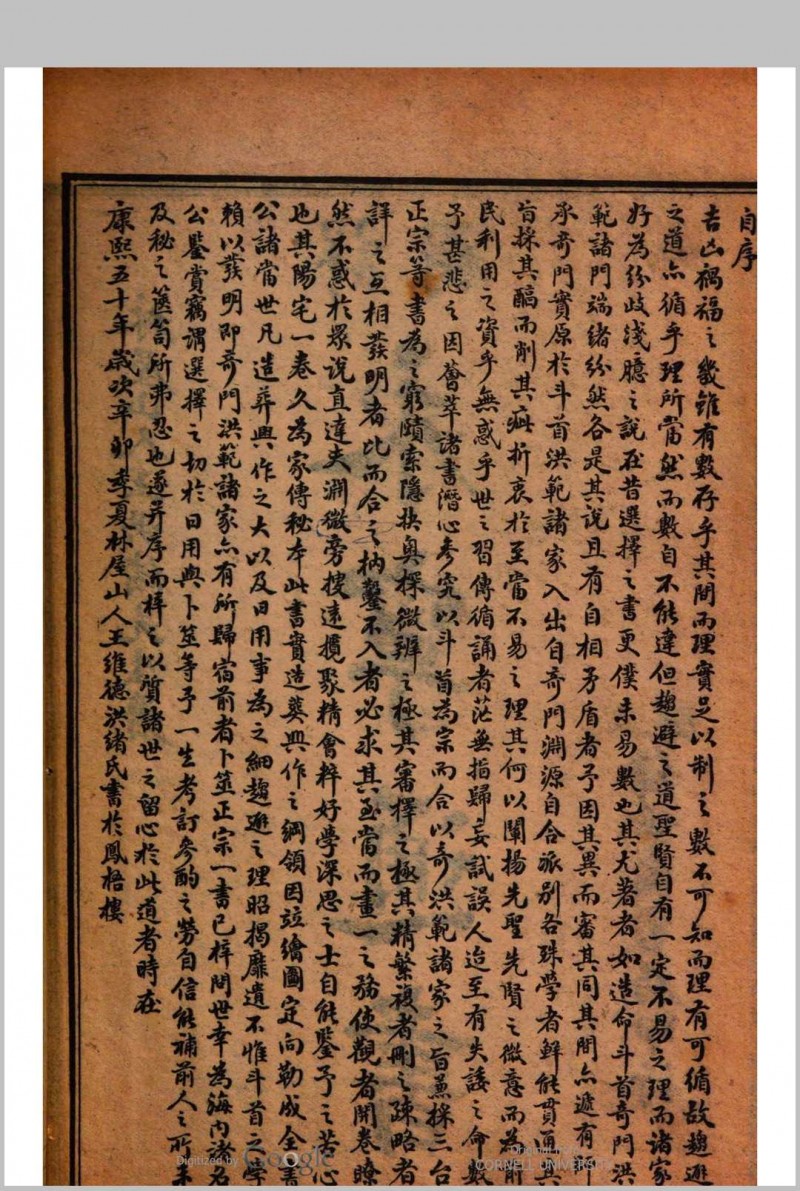 自序
吉凶禍福之幾雖有數存乎其間而理實足以制之數不可知而理有可循故趨避
之道亦循乎理所當然而數自不能違但趨避之道聖賢自有一定不易之理而諸家
好為紛歧淺臆之說在昔選擇之書更僕未易數也其尤著者如造命斗首奇門洪
範諸門端緒紛然各是其說且有自相矛盾者予因其異而審其同其間亦遞有師
承奇門實原於斗首洪範諸家入出自奇門淵源自合派別各殊學者鮮能貫通其
旨採其醕而削其疵折衷於至當不易之理其何以闡揚先聖先賢之微意而為前
民利用之資乎無惑乎世之習傳循誦者茫無指歸妄試誤人迨至有失諉之命數
予甚悲之因薈萃諸書潛心參究以斗首為宗而合以奇洪範諸家之旨兼採三台
正宗等書為之窮賾索隱抉奧探微辨之極其審擇之極其精繁複者刪之疎略者
詳之互相發明者比而合之枘鑿不入者必求其至當而畫一之務使觀者開卷瞭
然不惑於眾說直達夫淵微旁搜遠攬聚精會粹好學深思之士自能鑒予之苦心
也其陽宅一卷久為家傳秘本此書實造葬興作之綱領因竝繪圖定向勒成全書
公諸當世凡造葬興作之大以及日用事為之細趨避之理昭揭靡遺不惟斗首之學
賴以發明即奇門洪範諸家亦有所歸宿前者卜筮正宗一書已梓問世幸為海內諸名
公鑒賞竊謂選擇之切於日用與卜筮等予一生考訂參酌之勞自信能補前人之所未
及秘之篋笥所弗忍也遂弁序而梓之以質諸世之留心於此道者時在
康熙五十年歲次辛卯季夏林屋山人王維德洪緒氏書於鳳梧樓
Digitized by Google
Original from
CORNELL UNIVERSITY